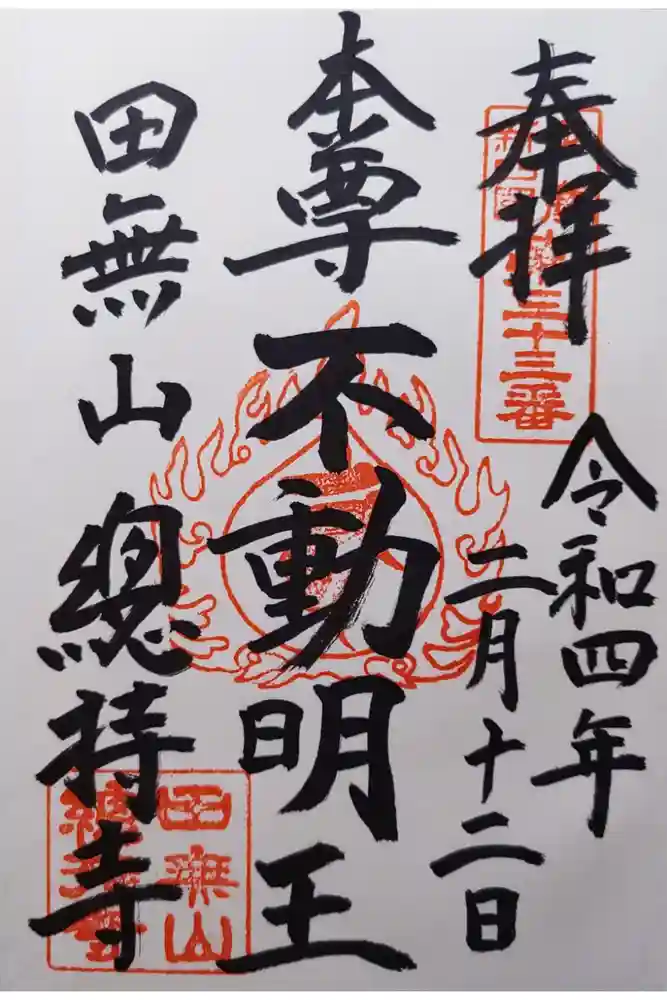 奉拝
令和四年
二月十二日
本尊不動明王
田無山總持寺
三十三番
田無山
總持寺